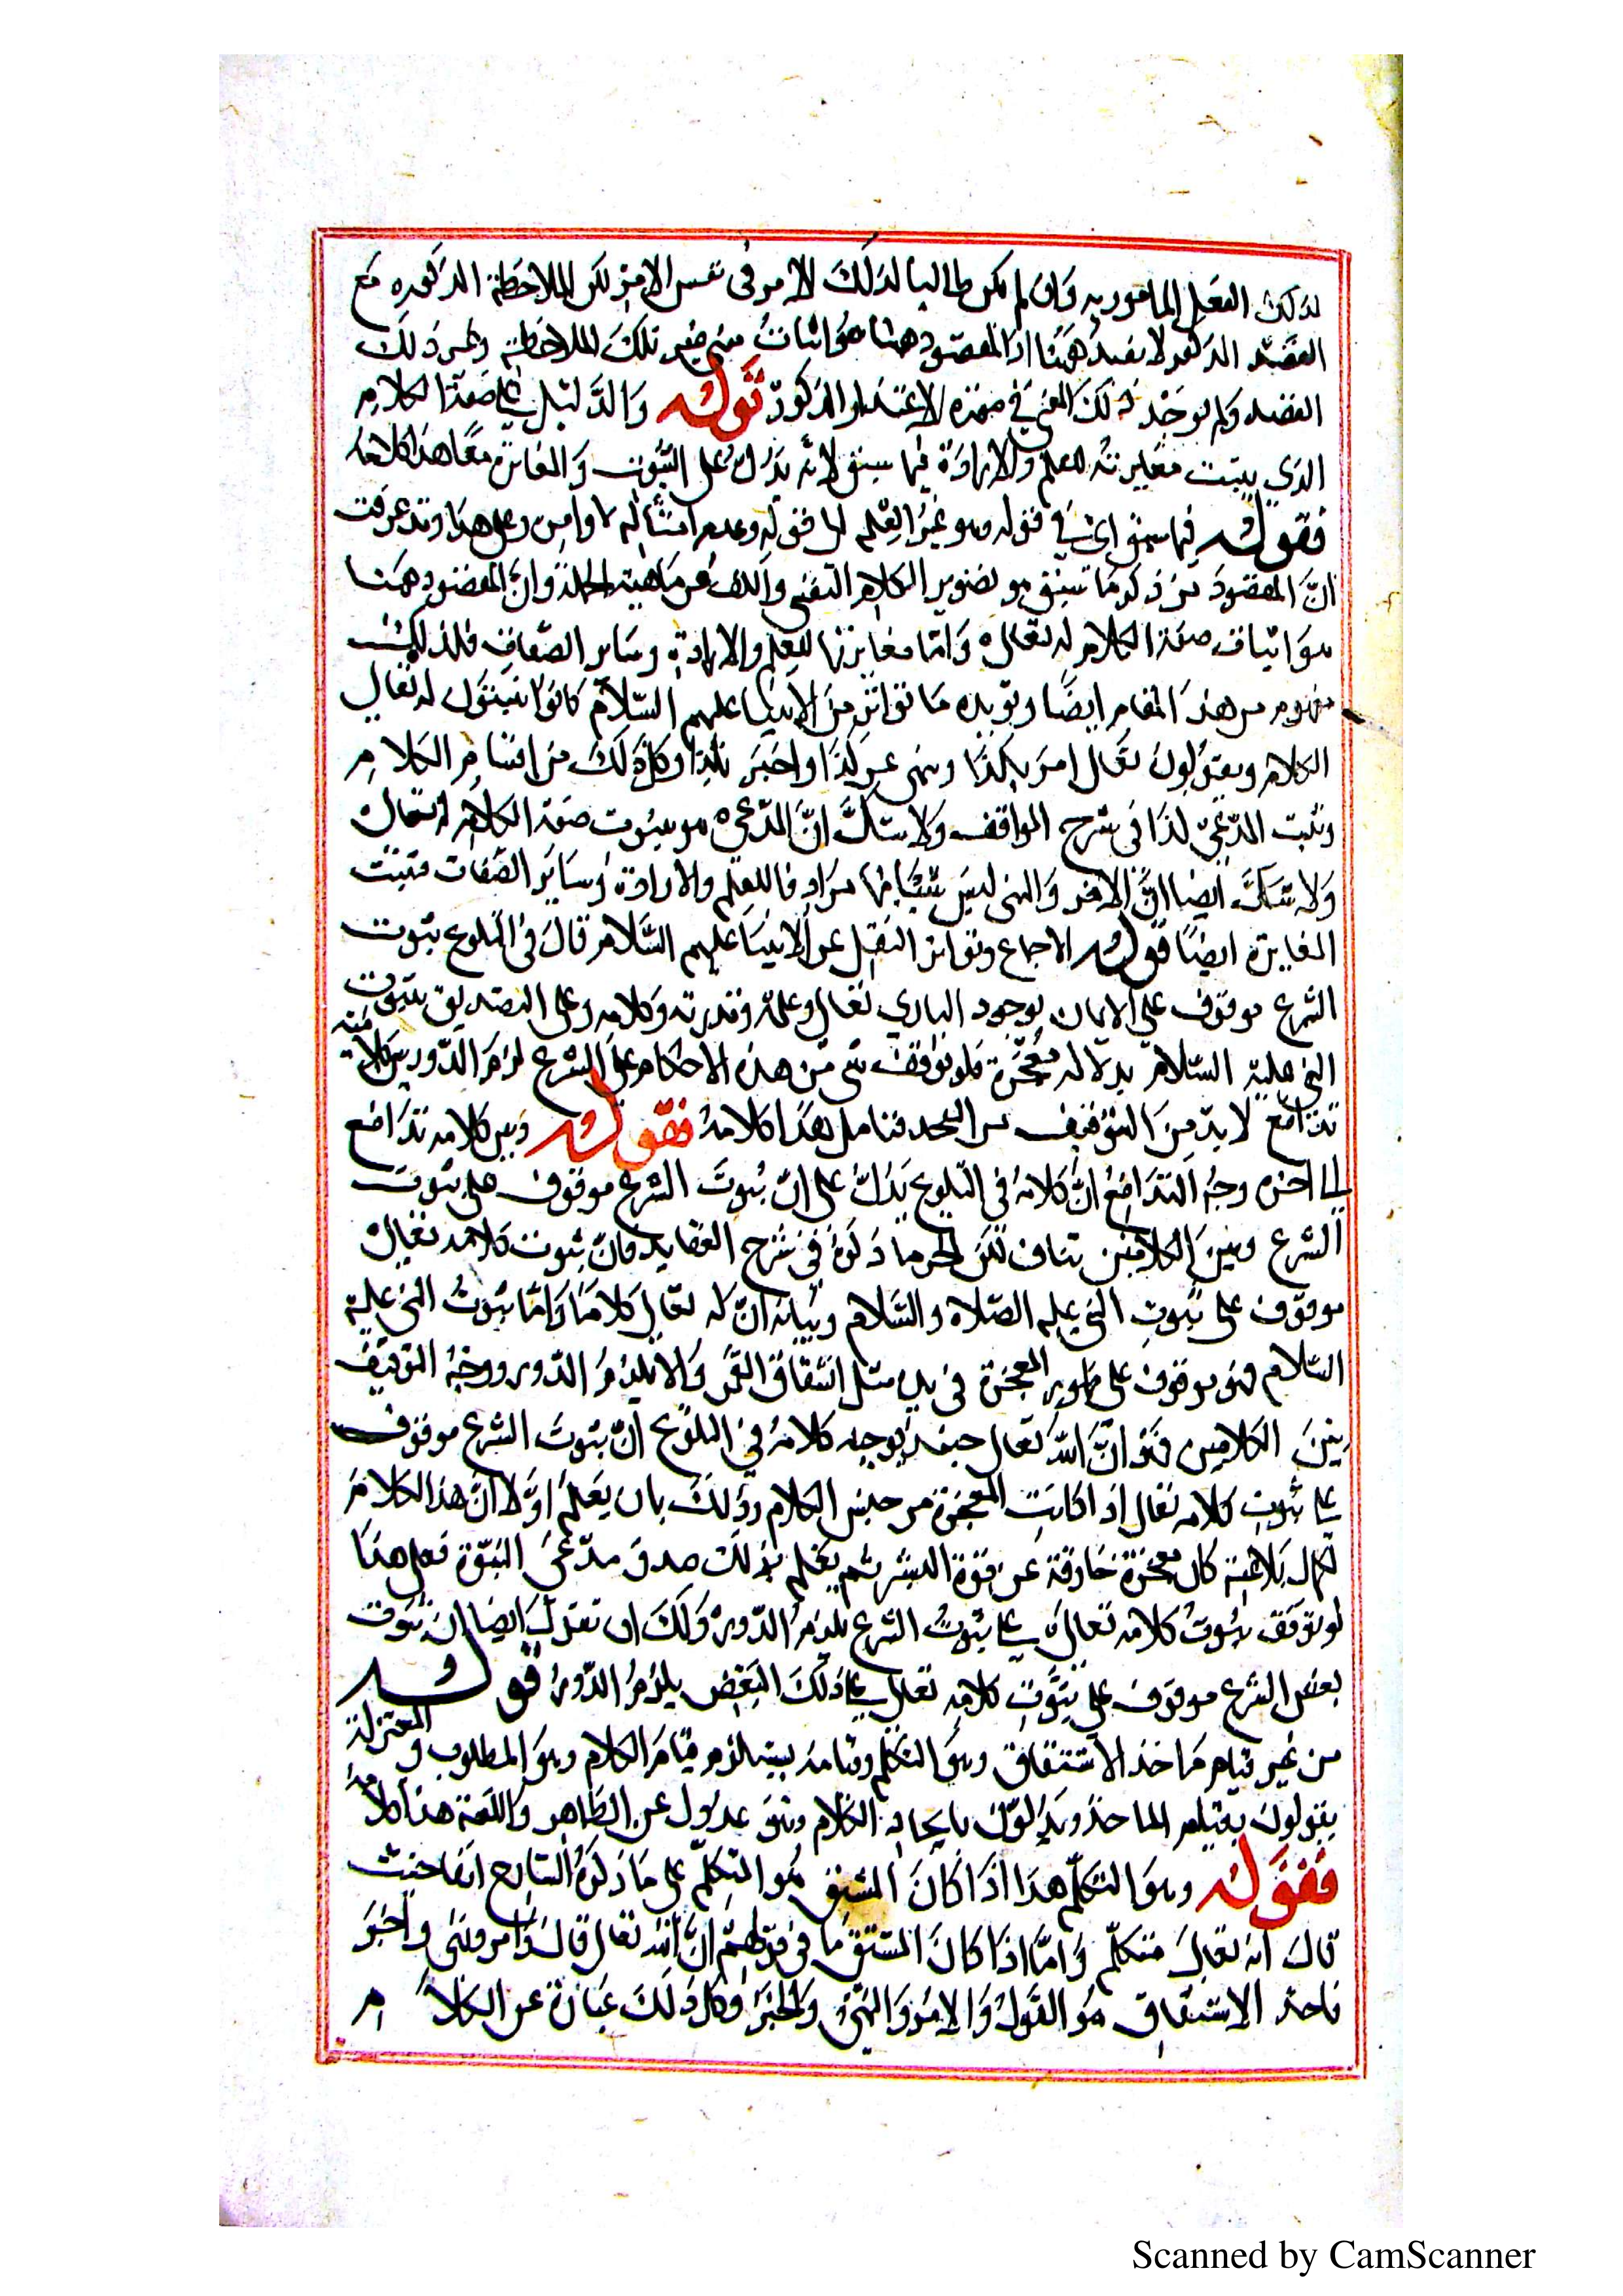 لذلك الفعل المامور به وان لم يكن طالبا لذلك الامر فى نفس الامر لكن الملاحظة المذكوره مع
القصد المذكور لا يفيد ههنا اذ المقصود ههنا هو اثبات تلك الملاحظة وغير ذلك
القصد ولم يوجد ذلك المعنى في هذه الاعتبار المذكور قوله والدليل على صفة الكلام
الذي يثبت مغايرته للعلم والارادة فيما سبق لانه يدل على الثبوت والمغايرة معا هذا كلامه
فقوله فيما سبق اى في قوله وهو غير العلم الى قوله وعدم امتثاله لاوامره وعلى هذا وقد عرفت
ان المقصود من ذكر ما سبق هو تصوير الكلام النفسي والكشف عن ماهيته الجملة وان المقصود ههنا
هو اثبات صفة الكلام له تعالى واما مغايرتها للعلم والارادة وساير الصفات فلذلك
مفهوم من هذا المقام ايضا ويؤيده ما تواتر من الانبيا عليهم السلام كانوا يثبتون له تعالى
الكلام ويقولون تعالى امر بكذا ونهى عن كذا واخبر بكذا وكل ذلك من اقسام الكلام
وثبت المدعى كذا فى شرح المواقف ولا شك ان المدعى هو ثبوت صفة الكلام له تعالى
ولا شك ايضا ان الامر والنهى ليس بمرادفا للعلم والارادة وساير الصفات فتثبت
المغايرة ايضا قوله الاجماع وتواتر النقل عن الانبيا عليهم السلام قال فى التلويح ثبوت
الشرع موقوف على الايمان بوجود البارى تعالى وعلمه وقدرته وكلامه وعلى التصديق بثبوت
النبي عليه السلام بدلالة معجزة فلو توقف شى من هذه الاحكام على الشرع لزم الدور وبين كلاميه
تدافع لا بد من التوفيق فتامل هذا كلامه فقوله وبين كلامه تدافع
الى اخره وجه التدافع ان كلامه فى التلويح يدل على ان ثبوت الشرع موقوف على ثبوت
الشرع وبين الكلامين تناف لكن الحق ما ذكره فى شرح العقايد فان ثبوت كلامه تعالى
موقوف على ثبوت النبي عليه الصلاة والسلام وبيانه ان له تعالى كلاما واما ثبوت النبي عليه
السلام فهو موقوف على ظهور المعجزة في يده مثل انشقاق القمر والا يلزم الدور ووجه التوفيق
بين الكلامين فهو ان الله تعالى حينئذ يوجه كلامه فى التلويح ان ثبوت الشرع موقوف
على ثبوت كلامه تعالى اذا كانت المعجزة من جنس الكلام وذلك بان يعلم اولا ان هذا الكلام
لكمال بلاغته كان معجزة خارقة عن قوة البشر ثم يعلم بذلك صدق مدعى النبوة فعلى هذا
لو توقف ثبوت كلامه تعالى على ثبوت الشرع يلزم الدور ولك ان تقول ايضا ان ثبوت
بعض الشرع موقوف على ثبوت كلامه تعالى على ذلك البعض يلزم الدور قوله
من غير قيام ماخذ الاشتقاق وهو التكلم وقيامه يستلزم قيام الكلام وهو المطلوب والمعتزلة
يقولون بقيام الماخذ ويؤولون بايجاد الكلام وهو عدول عن الظاهر واللغة هذا كلامه
فقوله وهو التكلم هذا اذا كان المشتق هو المتكلم على ما ذكره الشارح انفا حيث
قال انه تعالى متكلم واما اذا كان المشتق ما فى قولهم ان الله تعالى قال وامر ونهى واخبر
فاخذ الاشتقاق هو القول والامر والنهى والخبر وكل ذلك عبارة عن الكلام
Scanned by CamScanner